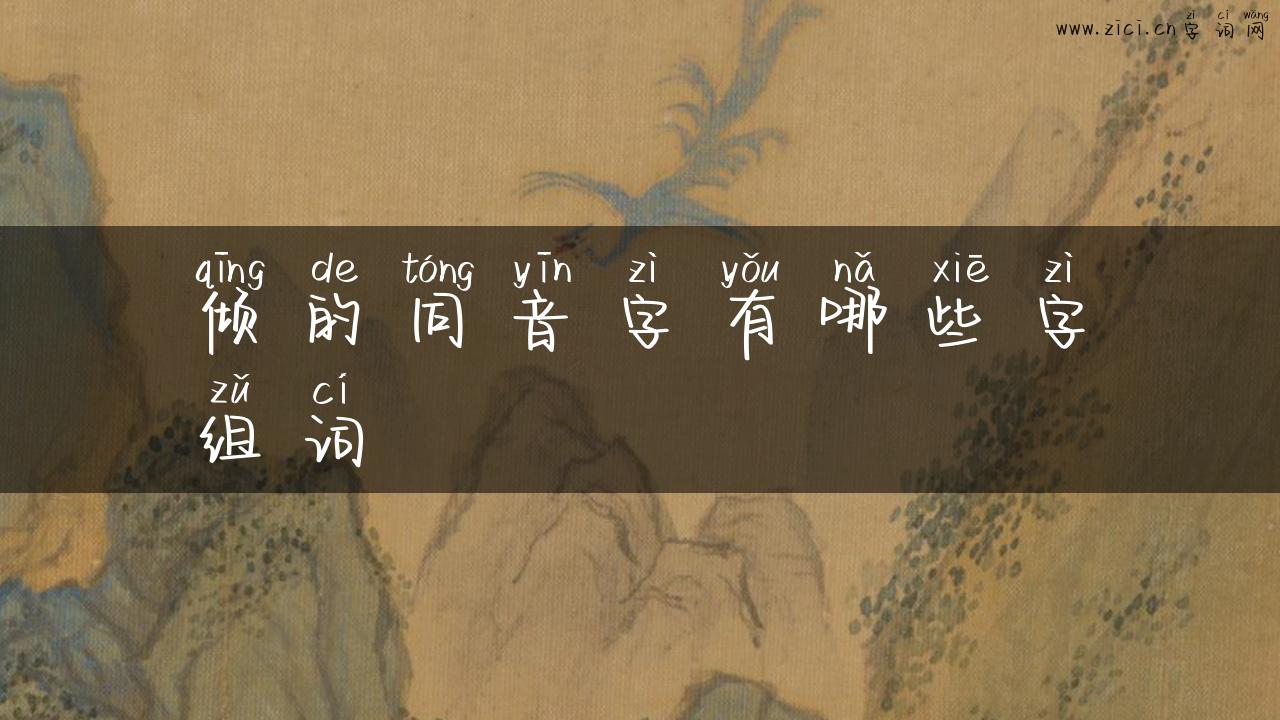 zì cí wǎng
www.zici.cn字词网
qīng de tóng yīn zì yǒu nǎ xiē zì
倾的同音字有哪些字
zǔ cí
组词